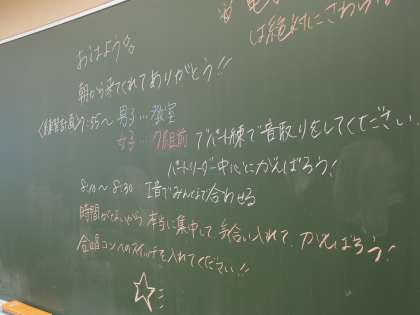 ※電
は絶対にさわ
おはよう
朝から来てくれてありがとう!!
〈練習計画〉7:55～ 男子…教室
女子…7組前 でパート練で音取りをしてください
パートリーダー中心にがんばろう!
8:10～8:30 I音でみんなで合わせる
時間がないから、本当に集中して、気合い入れて、がんばろう!
合唱コンへのスイッチを入れてください!!